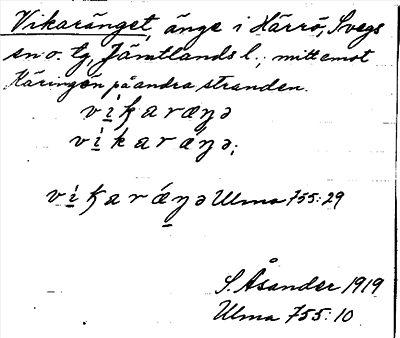 Vikaränget, änge i Härrö, Svegs
sn o. tg, Jämtlands l.; mitt emot
Käringön på andra stranden.
vi̲ꝁaræŋə
vi̲karǽŋə;
ví̲ꝁarǽŋ̲ə Ulma 755:29
S. Åsander 1919
Ulma 755:10